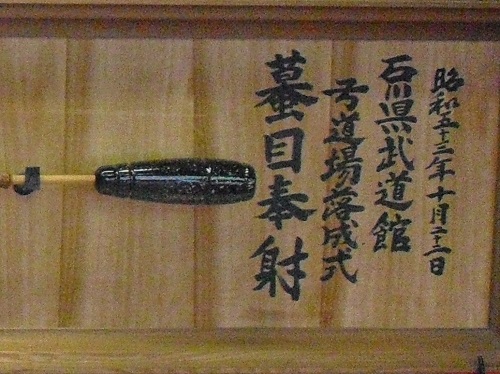 昭和五十三年十月二十二日
石川県武道館
弓道場落成式
蟇目奉射